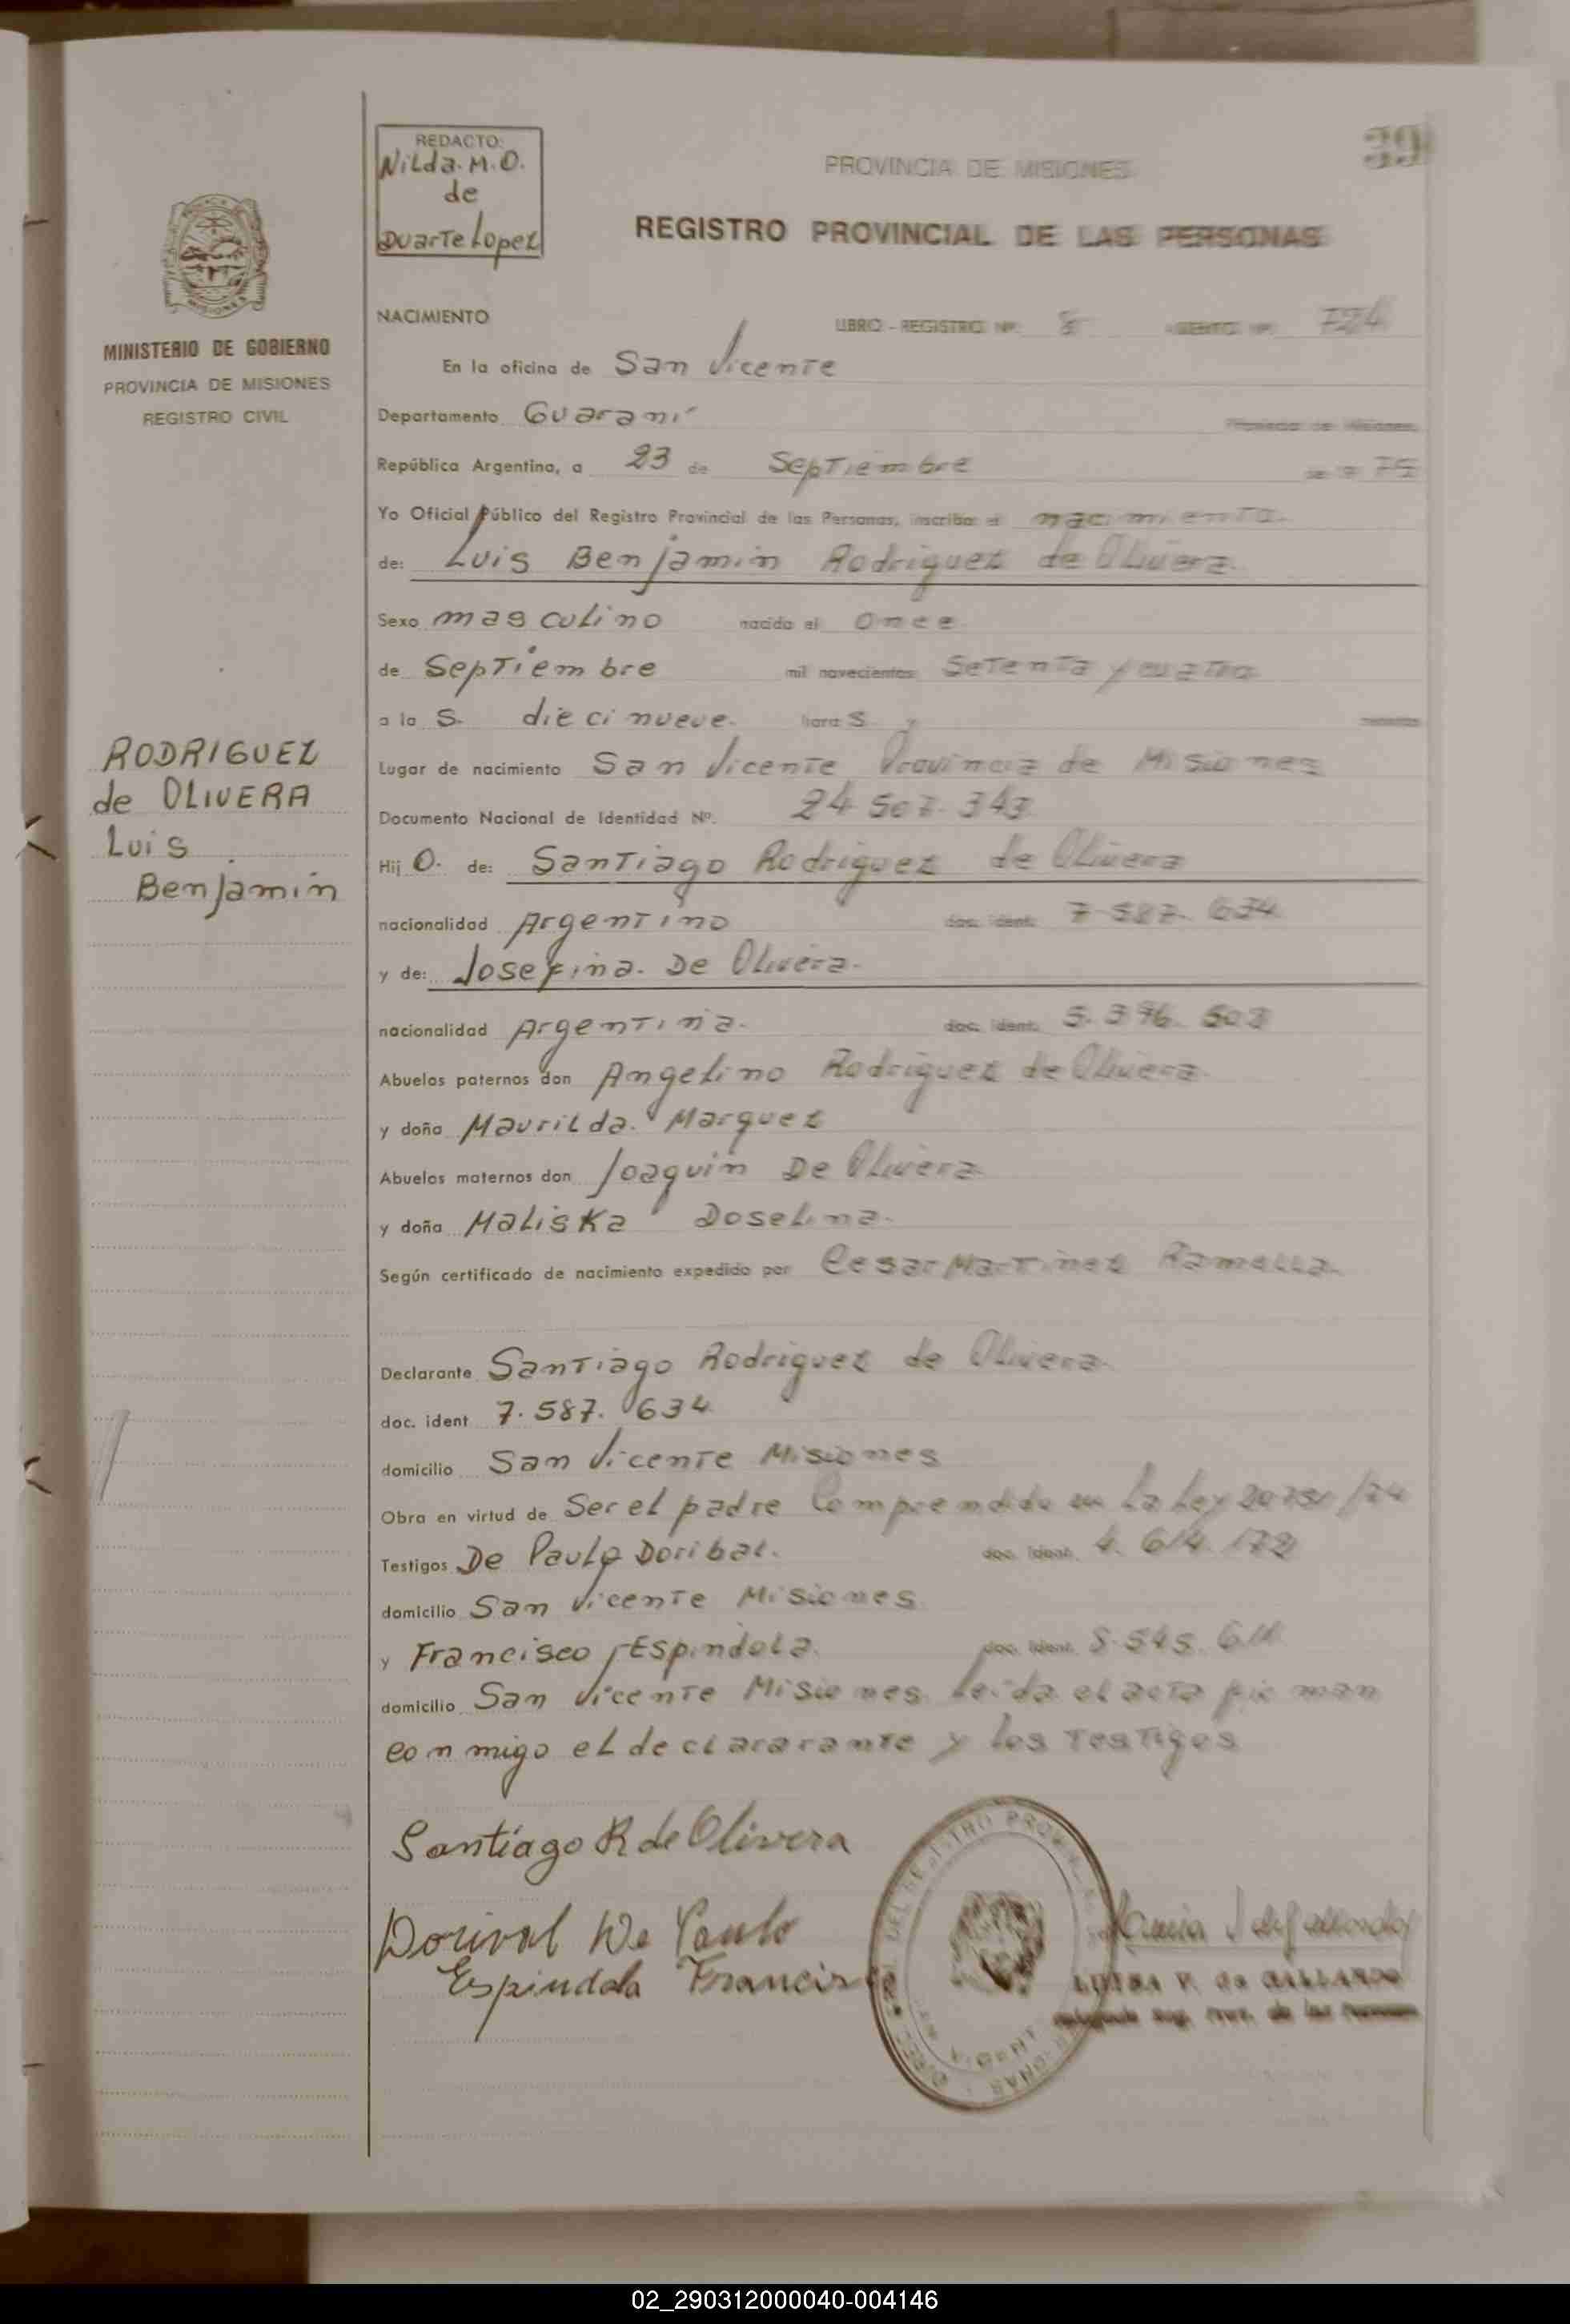 REDACTO:
Nilda. M. O.
de
Duarte Lopez
PROVINCIA DE MISIONES
REGISTRO PROVINCIAL DE LAS PERSONAS
MINISTERIO DE GOBIERNO
PROVINCIA DE MISIONES
REGISTRO CIVIL
NACIMIENTO LIBRO - REGISTRO Nº 8 ASIENTO Nº 724
En la oficina de San Vicente
Departamento Guaraní Provincia de Misiones,
República Argentina, a 23 de Septiembre de 19 75
Yo Oficial Público del Registro Provincial de las Personas, inscribo el nacimiento.
de: Luis Benjamin Rodriguez de Olivera.
Sexo masculino nacido el once
de Septiembre mil novecientos setenta y cuatro
a la s. diecinueve. hora s. y minutos
Lugar de nacimiento San Vicente Provincia de Misiones
Documento Nacional de Identidad Nº. 24.507.343
Hij o. de: Santiago Rodriguez de Olivera
nacionalidad Argentino doc. ident. 7.587.634
y de: Josefina. De Olivera.
nacionalidad Argentina. doc. ident.
Abuelos paternos don Angelino Rodriguez de Olivera.
y doña Maurilda. Marquez
Abuelos maternos don Joaquin De Olivera
y doña Maliska Doselina.
Según certificado de nacimiento expedido por Cesar Martinez Ramella.
RODRIGUEZ
de OLIVERA
Luis
Benjamin
Declarante Santiago Rodriguez de Olivera.
doc. ident 7.587.634
domicilio San Vicente Misiones
Obra en virtud de Ser el padre Comprendido en La Ley
Testigos De Paulo Doribal. doc. ident. 4.614.172
domicilio San Vicente Misiones
y Francisco Espindola. doc. ident.
domicilio San Vicente Misiones. Leida el acta firman
conmigo el declararante y los testigos
Santiago R de Olivera
Dorival De Paulo
Espindola Francis
LUISA V. de GALLARDO
02_290312000040-004146